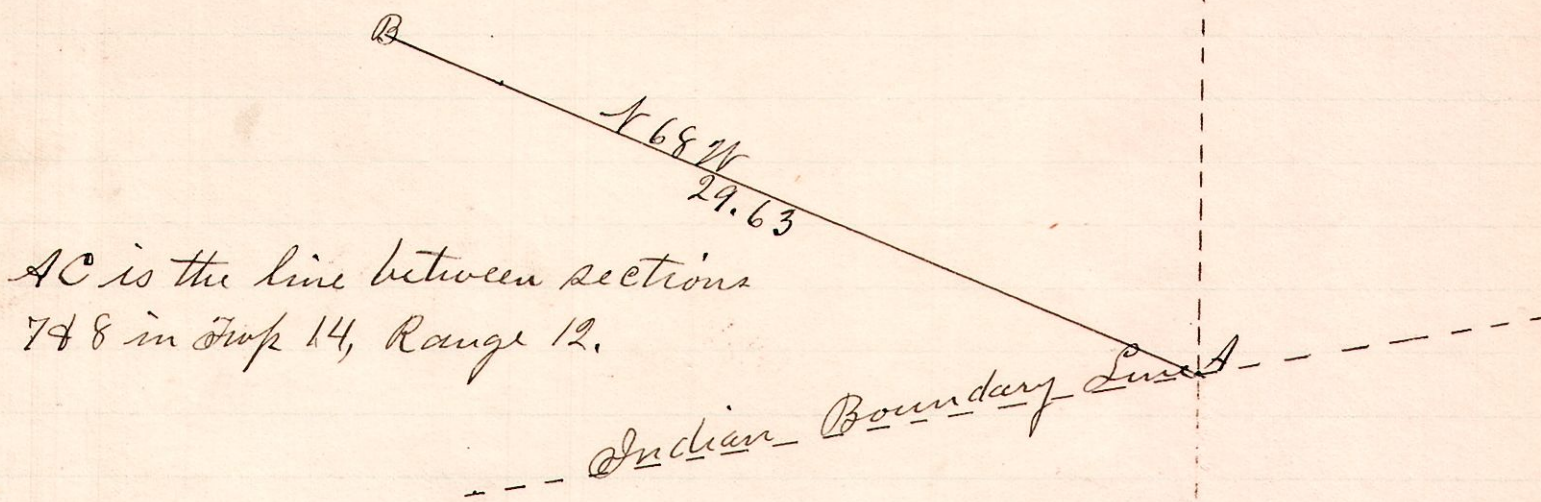 B
N 68 W
29.63
AC is the line between sections
7 & 8 in Twp 14, Range 12.
A
Indian Boundary Line